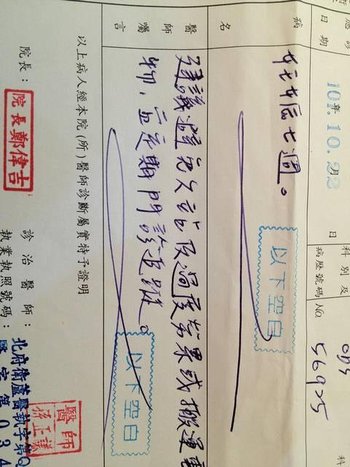 應診日期
107.10.22
科別及病歷號碼
OBS
No 56925
病名
妊娠七週。
以下空白
醫師囑言
建議避免久站及過度勞累或搬運重物,並定期門診追蹤。
以下空白
以上病人經本院(所)醫師診斷屬實特予證明
院長:
院長鄭偉吉
診治醫師:
執業執照號碼:
醫師
北府衛醫
字第